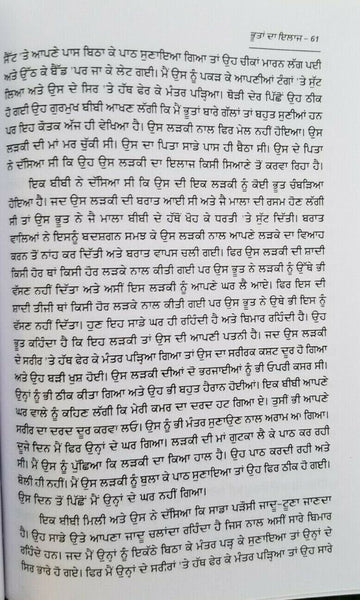 ਭੂਤਾਂ ਦਾ ਇਲਾਜ - 61
ਸੈੱਟ 'ਤੇ ਆਪਣੇ ਪਾਸ ਬਿਠਾ ਕੇ ਪਾਠ ਸੁਣਾਇਆ ਗਿਆ ਤਾਂ ਉਹ ਚੀਕਾਂ ਮਾਰਨ ਲੱਗ ਪਈ
ਅਤੇ ਉੱਠ ਕੇ ਬੈੱਡ 'ਪਰ ਜਾ ਕੇ ਲੇਟ ਗਈ। ਮੈਂ ਉਸ ਨੂੰ ਪਕੜ ਕੇ ਆਪਣੀਆਂ ਟੰਗਾਂ 'ਤੇ ਸੁੱਟ
ਲਿਆ ਅਤੇ ਉਸ ਦੇ ਸਿਰ 'ਤੇ ਹੱਥ ਫੇਰ ਕੇ ਮੰਤਰ ਪੜ੍ਹਿਆ। ਥੋੜੀ ਦੇਰ ਪਿੱਛੋਂ ਉਹ ਠੀਕ
ਹੋ ਗਈ ਉਹ ਗੁਰਮੁਖ ਬੀਬੀ ਆਖਣ ਲੱਗੀ ਕਿ ਮੈਂ ਭੂਤਾਂ ਬਾਰੇ ਗੱਲਾਂ ਤਾਂ ਬਹੁਤ ਸੁਣੀਆਂ ਹਨ
ਪਰ ਇਹ ਕੌਤਕ ਅੱਜ ਹੀ ਵੇਖਿਆ ਹੈ। ਉਸ ਲੜਕੀ ਨਾਲ ਫਿਰ ਮੇਲ ਨਹੀਂ ਹੋਇਆ। ਉਸ
ਲੜਕੀ ਦੀ ਮਾਂ ਮਰ ਚੁੱਕੀ ਸੀ। ਉਸ ਦਾ ਪਿਤਾ ਸਾਡੇ ਪਾਸ ਹੀ ਬੈਠਾ ਸੀ। ਉਸ ਦੇ ਪਿਤਾ
ਨੇ ਦੱਸਿਆ ਸੀ ਕਿ ਉਹ ਉਸ ਲੜਕੀ ਦਾ ਇਲਾਜ ਕਿਸੀ ਸਿਆਣੇ ਤੋਂ ਕਰਵਾ ਰਿਹਾ ਹੈ।
ਇਕ ਬੀਬੀ ਨੇ ਦੱਸਿਆ ਸੀ ਕਿ ਉਸ ਦੀ ਇਕ ਲੜਕੀ ਨੂੰ ਕੋਈ ਭੂਤ ਚੰਬੜਿਆ
ਹੋਇਆ ਹੈ। ਜਦ ਉਸ ਲੜਕੀ ਦੀ ਬਰਾਤ ਆਈ ਸੀ ਅਤੇ ਜੈ ਮਾਲਾ ਦੀ ਰਸਮ ਹੋਣ ਲੱਗੀ
ਸੀ ਤਾਂ ਉਸ ਭੂਤ ਨੇ ਜੈ ਮਾਲਾ ਬੀਬੀ ਦੇ ਹੱਥੋਂ ਖੋਹ ਕੇ ਧਰਤੀ 'ਤੇ ਸੁੱਟ ਦਿੱਤੀ। ਬਰਾਤ
ਵਾਲਿਆਂ ਨੇ ਇਸਨੂੰ ਬਦਸ਼ਗਨ ਸਮਝ ਕੇ ਉਸ ਲੜਕੀ ਨਾਲ ਆਪਣੇ ਲੜਕੇ ਦਾ ਵਿਆਹ
ਕਰਨ ਤੋਂ ਨਾਂਹ ਕਰ ਦਿੱਤੀ ਅਤੇ ਬਰਾਤ ਵਾਪਸ ਚਲੀ ਗਈ। ਫਿਰ ਉਸ ਲੜਕੀ ਦੀ ਸ਼ਾਦੀ
ਕਿਸੀ ਹੋਰ ਥਾਂ ਕਿਸੀ ਹੋਰ ਲੜਕੇ ਨਾਲ ਕੀਤੀ ਗਈ ਪਰ ਉਸ ਭੂਤ ਨੇ ਲੜਕੀ ਨੂੰ ਉੱਥੇ ਭੀ
ਵੱਸਣ ਨਹੀਂ ਦਿੱਤਾ ਅਤੇ ਅਸੀਂ ਇਸ ਲੜਕੀ ਨੂੰ ਆਪਣੇ ਘਰ ਲੈ ਆਏ। ਫਿਰ ਇਸ ਦੀ
ਸ਼ਾਦੀ ਤੀਜੀ ਥਾਂ ਕਿਸੀ ਹੋਰ ਲੜਕੇ ਨਾਲ ਕੀਤੀ ਗਈ ਪਰ ਉਸ ਭੂਤ ਨੇ ਉਥੇ ਭੀ ਇਸ ਨੂੰ
ਵੱਸਣ ਨਹੀਂ ਦਿੱਤਾ। ਹੁਣ ਇਹ ਸਾਡੇ ਘਰ ਹੀ ਰਹਿੰਦੀ ਹੈ ਅਤੇ ਬਿਮਾਰ ਰਹਿੰਦੀ ਹੈ। ਉਹ
ਭੂਤ ਕਹਿੰਦਾ ਹੈ ਕਿ ਉਹ ਲੜਕੀ ਤਾਂ ਉਸ ਦੀ ਆਪਣੀ ਪਤਨੀ ਹੈ। ਜਦ ਉਸ ਲੜਕੀ
ਦੇ ਸਰੀਰ 'ਤੇ ਹੱਥ ਫੇਰ ਕੇ ਮੰਤਰ ਪੜ੍ਹਿਆ ਗਿਆ ਤਾਂ ਉਸ ਦਾ ਸਰੀਰਕ ਕਸ਼ਟ ਦੂਰ ਹੋ ਗਿਆ
ਅਤੇ ਉਹ ਬੜੀ ਖੁਸ਼ ਹੋਈ। ਉਸ ਲੜਕੀ ਦੀਆਂ ਦੋ ਭਰਜਾਈਆਂ ਨੂੰ ਭੀ ਓਪਰੀ ਕਸਰ ਸੀ।
ਉਨ੍ਹਾਂ ਨੂੰ ਭੀ ਠੀਕ ਕੀਤਾ ਗਿਆ ਅਤੇ ਉਹ ਭੀ ਬਹੁਤ ਹੈਰਾਨ ਹੋਈਆਂ। ਇਕ ਬੀਬੀ ਆਪਣੇ
ਘਰ ਵਾਲੇ ਨੂੰ ਕਹਿਣ ਲੱਗੀ ਕਿ ਮੇਰੀ ਕਮਰ ਦਾ ਦਰਦ ਹਟ ਗਿਆ ਏ। ਤੁਸੀਂ ਭੀ ਆਪਣੇ
ਸਰੀਰ ਦਾ ਦਰਦ ਦੂਰ ਕਰਵਾ ਲਓ। ਉਸ ਨੂੰ ਭੀ ਮੰਤਰ ਸੁਣਾਉਣ ਨਾਲ ਅਰਾਮ ਆ ਗਿਆ।
ਦੂਜੇ ਦਿਨ ਮੈਂ ਫਿਰ ਉਨ੍ਹਾਂ ਦੇ ਘਰ ਗਿਆ। ਲੜਕੀ ਦੀ ਮਾਂ ਗੁਟਕਾ ਲੈ ਕੇ ਪਾਠ ਕਰ ਰਹੀ
ਸੀ। ਮੈਂ ਉਸ ਨੂੰ ਪੁੱਛਿਆ ਕਿ ਲੜਕੀ ਦਾ ਕਿਆ ਹਾਲ ਹੈ। ਉਹ ਪਾਠ ਕਰਦੀ ਰਹੀ ਅਤੇ
ਬੋਲੀ ਹੀ ਨਹੀਂ। ਮੈਂ ਉਸ ਲੜਕੀ ਨੂੰ ਬੁਲਾ ਕੇ ਪਾਠ ਸੁਣਾਇਆ ਤਾਂ ਉਹ ਫਿਰ ਠੀਕ ਹੋ ਗਈ।
ਉਸ ਦਿਨ ਤੋਂ ਪਿੱਛੋਂ ਮੈਂ ਉਨ੍ਹਾਂ ਦੇ ਘਰ ਨਹੀਂ ਗਿਆ।
ਇਕ ਬੀਬੀ ਮਿਲੀ ਅਤੇ ਉਸ ਨੇ ਦੱਸਿਆ ਕਿ ਸਾਡਾ ਪੜੋਸੀ ਜਾਦੂ-ਟੂਣਾ ਜਾਣਦਾ
ਹੈ। ਉਹ ਸਾਡੇ ਉਤੇ ਆਪਣਾ ਜਾਦੂ ਚਲਾਂਦਾ ਰਹਿੰਦਾ ਹੈ ਜਿਸ ਨਾਲ ਅਸੀਂ ਸਾਰੇ ਬਿਮਾਰ
ਰਹਿੰਦੇ ਹਨ। ਜਦ ਮੈਂ ਉਨ੍ਹਾਂ ਨੂੰ ਇਕੱਠੇ ਬਿਠਾ ਕੇ ਮੰਤਰ ਪੜ੍ਹ ਕੇ ਸੁਣਾਇਆ ਤਾਂ ਉਨ੍ਹਾਂ ਦੇ
ਸਿਰ ਭਾਰੇ ਹੋ ਗਏ। ਫਿਰ ਮੈਂ ਉਨ੍ਹਾਂ ਦੇ ਸਰੀਰਾਂ 'ਤੇ ਹੱਥ ਫੇਰ ਕੇ ਮੰਤਰ ਪੜ੍ਹਿਆ ਤਾਂ ਉਹ ਸਾਰੇ